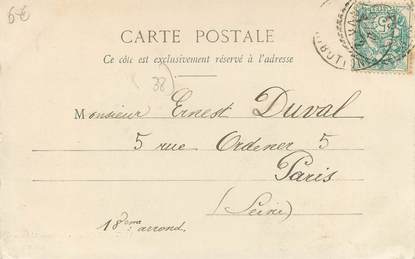 6€
CARTE POSTALE
Ce côté est exclusivement réservé à l'adresse
(38)
Monsieur Ernest Duval
5 rue Ordener 5
Paris
(Seine)
18ème arrond.